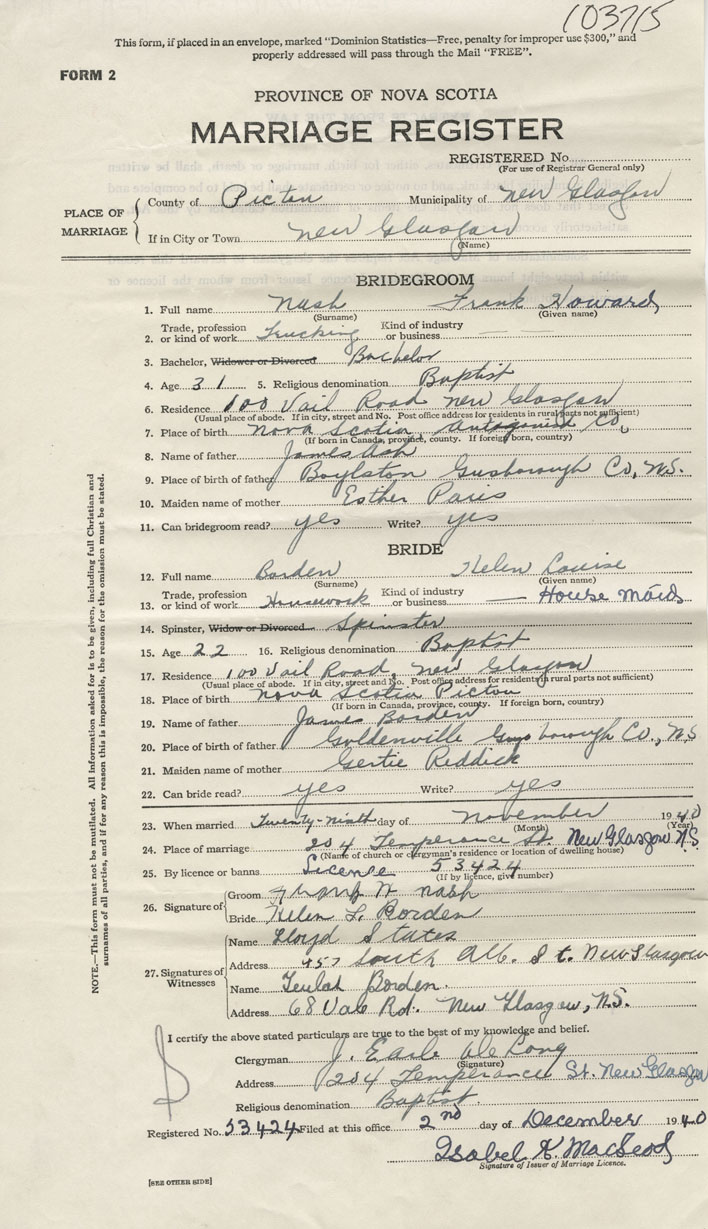 103715
This form, if placed in an envelope, marked "Dominion Statistics—Free, penalty for improper use $300," and
properly addressed will pass through the Mail "FREE".
FORM 2
PROVINCE OF NOVA SCOTIA
MARRIAGE REGISTER
REGISTERED No.
(For use of Registrar General only)
PLACE OF MARRIAGE
County of Pictou Municipality of New Glasgow
If in City or Town New Glasgow
(Name)
BRIDEGROOM
1. Full name Nash Frank Howard
(Surname) (Given name)
2. Trade, profession or kind of work Trucking Kind of industry or business
3. Bachelor, Widower or Divorced Bachelor
4. Age 31 5. Religious denomination Baptist
6. Residence 100 Vail Road New Glasgow
(Usual place of abode. If in city, street and No. Post office address for residents in rural parts not sufficient)
7. Place of birth Nova Scotia Antagonish Co,
(If born in Canada, province, county. If foreign born, country)
8. Name of father James Ash
9. Place of birth of father Boylston Gusborough Co, N.S.
10. Maiden name of mother Esther Paris
11. Can bridegroom read? yes Write? yes
BRIDE
12. Full name Borden Helen Louise
(Surname) (Given name)
13. Trade, profession or kind of work Housework Kind of industry or business — House maid
14. Spinster, Widow or Divorced Spinster
15. Age 22 16. Religious denomination Baptist
17. Residence 100 Vail Road, New Glasgow
(Usual place of abode. If in city, street and No. Post office address for residents in rural parts not sufficient)
18. Place of birth Nova Scotia Pictou
(If born in Canada, province, county. If foreign born, country)
19. Name of father James Borden
20. Place of birth of father Goldenville Guysborough Co., N.S
21. Maiden name of mother Gertie Reddick
22. Can bride read? yes Write? yes
23. When married Twenty-ninth day of November 1940
(Month) (Year)
24. Place of marriage 204 Temperance St. New Glasgow N.S.
(Name of church or clergyman's residence or location of dwelling house)
25. By licence or banns License 53424
(If by licence, give number)
26. Signature of
Groom Nash
Bride Helen L. Borden
27. Signatures of Witnesses
Name Lloyd States
Address 457 South Alb. St. New Glasgow
Name Borden.
Address 68 Vale Rd. New Glasgow, N.S.
I certify the above stated particulars are true to the best of my knowledge and belief.
Clergyman J. Earle DeLong
(Signature)
Address 204 Temperance St. New Glasgow
Religious denomination Baptist.
Registered No. 53424 Filed at this office 2nd day of December 1940
Isabel K. MacLeod
Signature of Issuer of Marriage Licence.
[SEE OTHER SIDE]
NOTE.—This form must not be mutilated. All information asked for is to be given, including full Christian and
surnames of all parties, and if for any reason this is impossible, the reason for the omission must be stated.